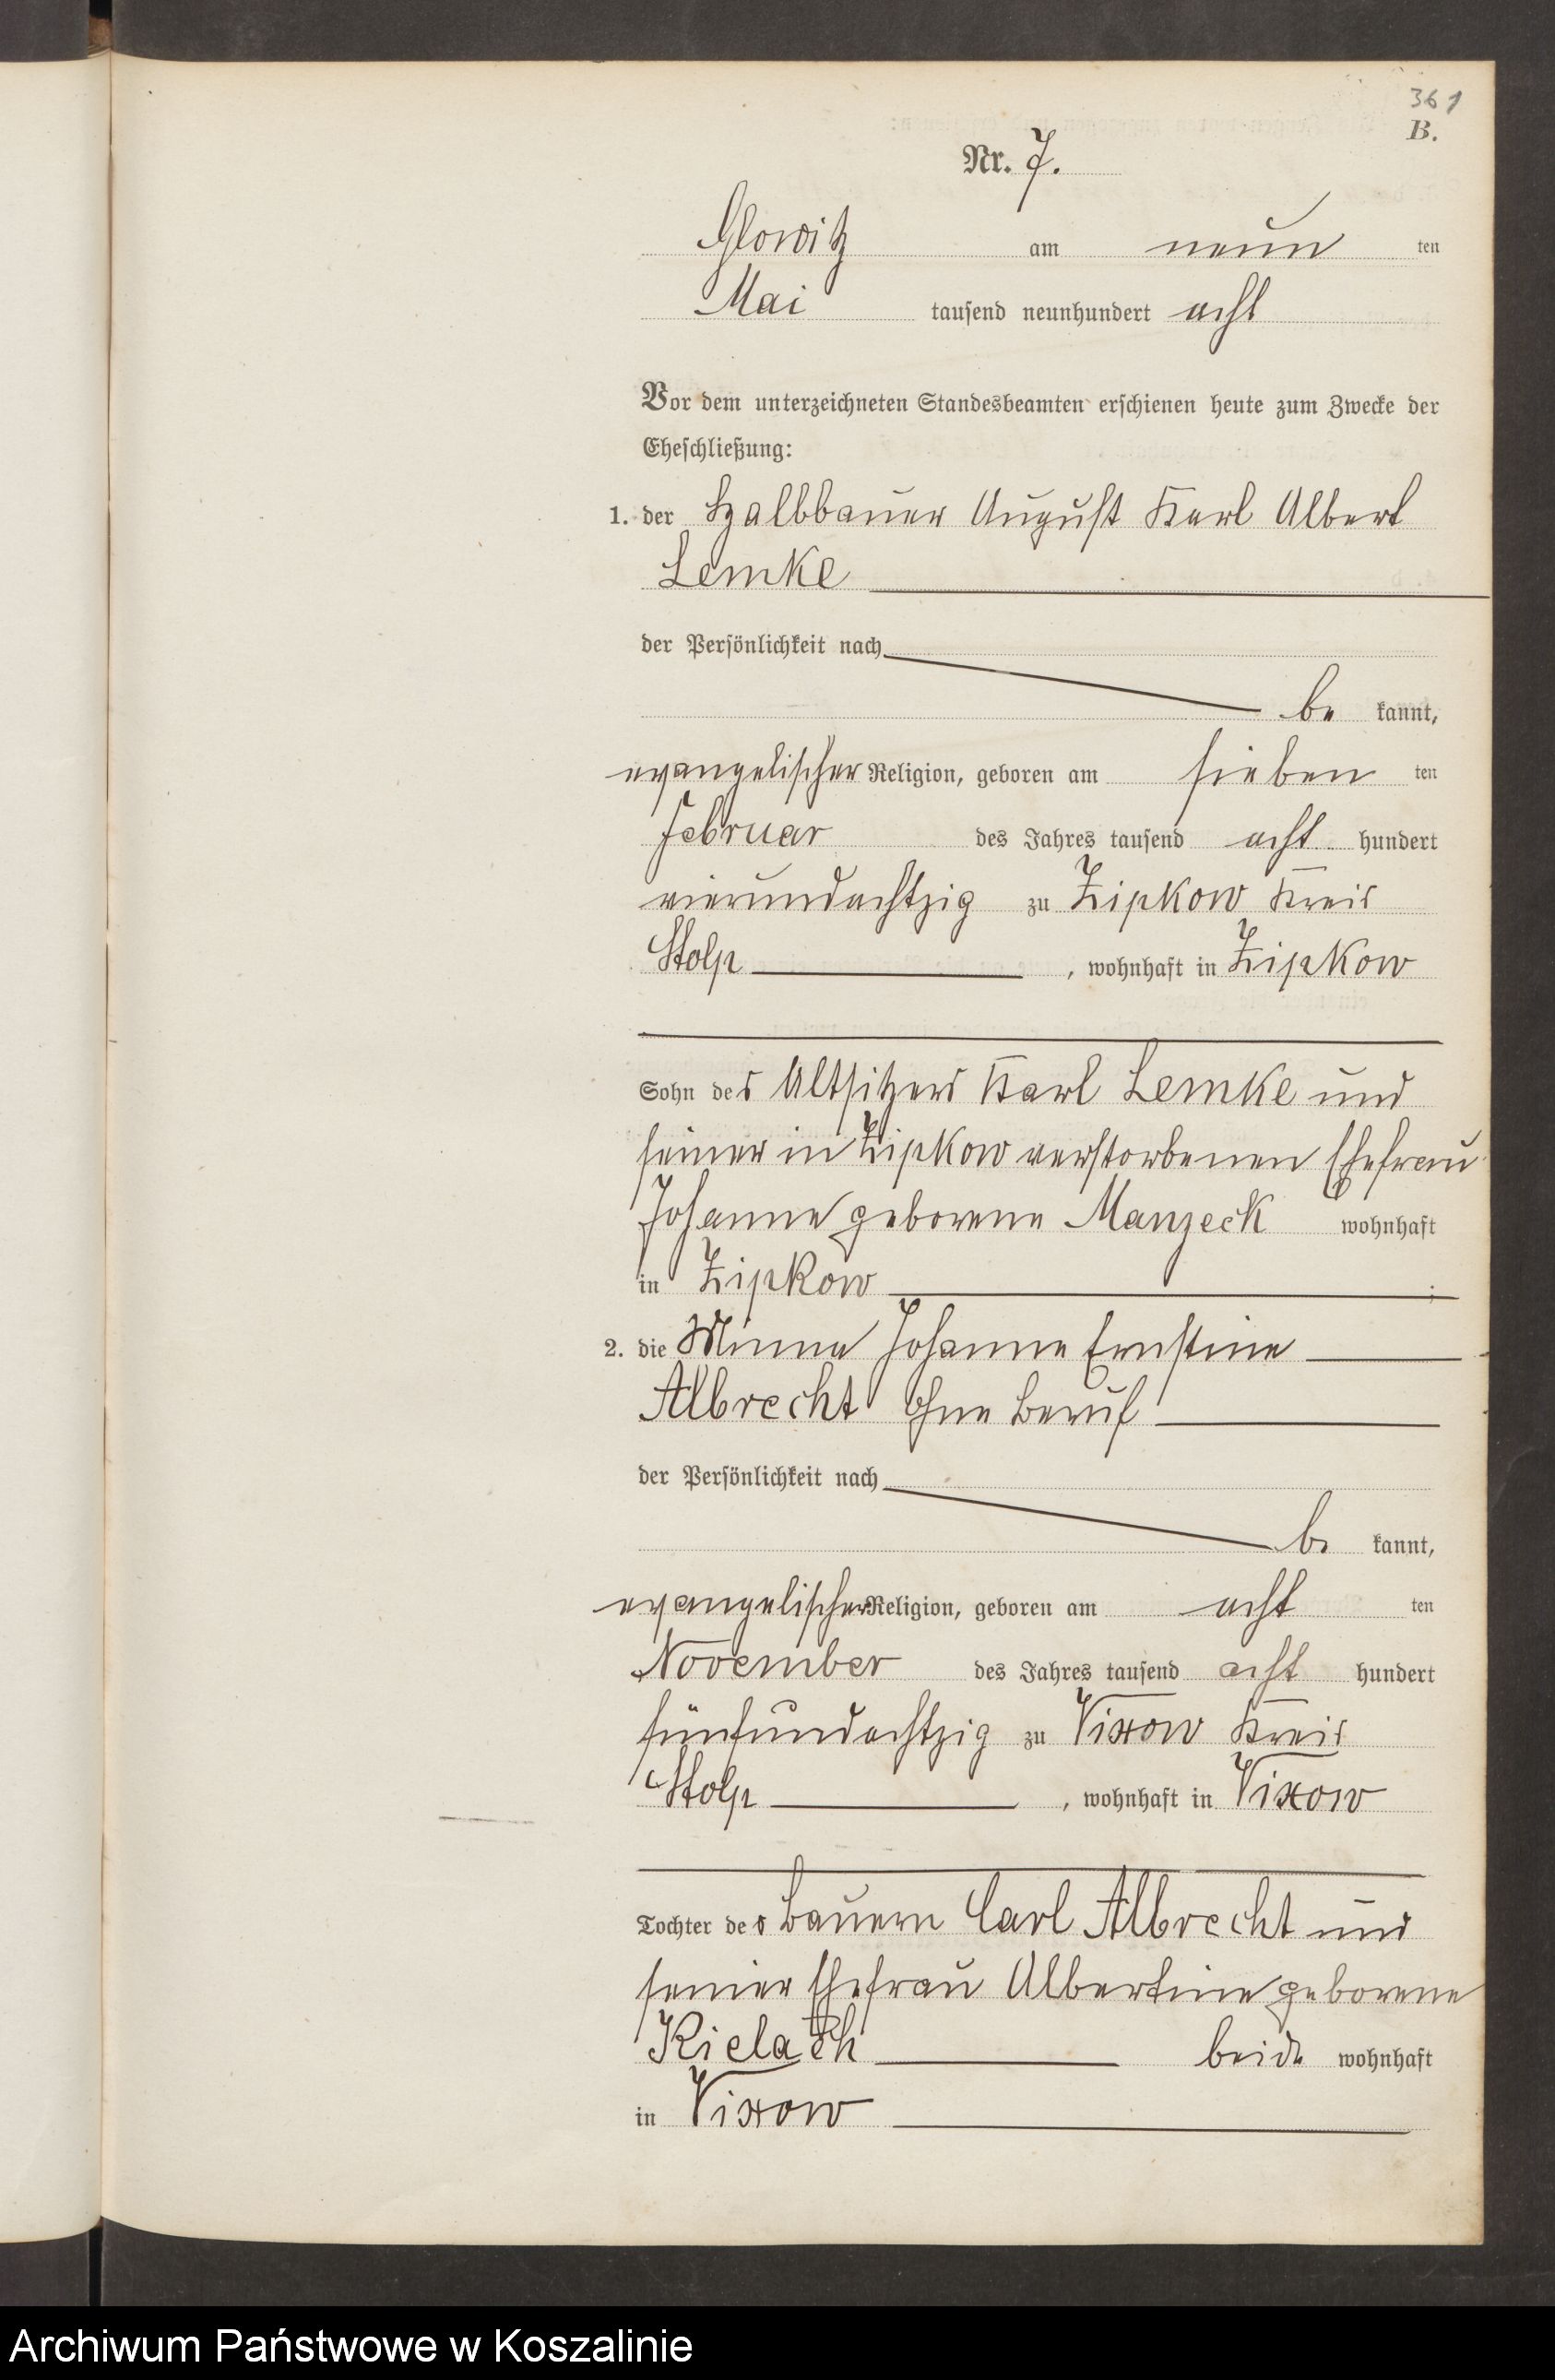 361
B.
Nr. 7.
Glowitz am neun ten
Mai tausend neunhundert acht
Vor dem unterzeichneten Standesbeamten erschienen heute zum Zwecke der
Eheschließung:
1. der Halbbauer August Karl Albert
Lemke
der Persönlichkeit nach
be kannt,
evangelischer Religion, geboren am sieben ten
Februar des Jahres tausend acht hundert
vierundachtzig zu Zipkow Kreis
Stolp, wohnhaft in Zipkow
Sohn des Altsitzers Karl Lemke und
seiner in Zipkow verstorbenen Ehefrau
Johanne geborene Manzeck wohnhaft
in Zipkow ;
2. die Minna Johanne Ernstine
Albrecht ohne Beruf
der Persönlichkeit nach
be kannt,
evangelischer Religion, geboren am acht ten
November des Jahres tausend acht hundert
fünfundachtzig zu Vixow Kreis
Stolp, wohnhaft in Vixow
Tochter des Bauern Carl Albrecht und
seiner Ehefrau Albertine geborene
beide wohnhaft
in Vixow
Archiwum Państwowe w Koszalinie